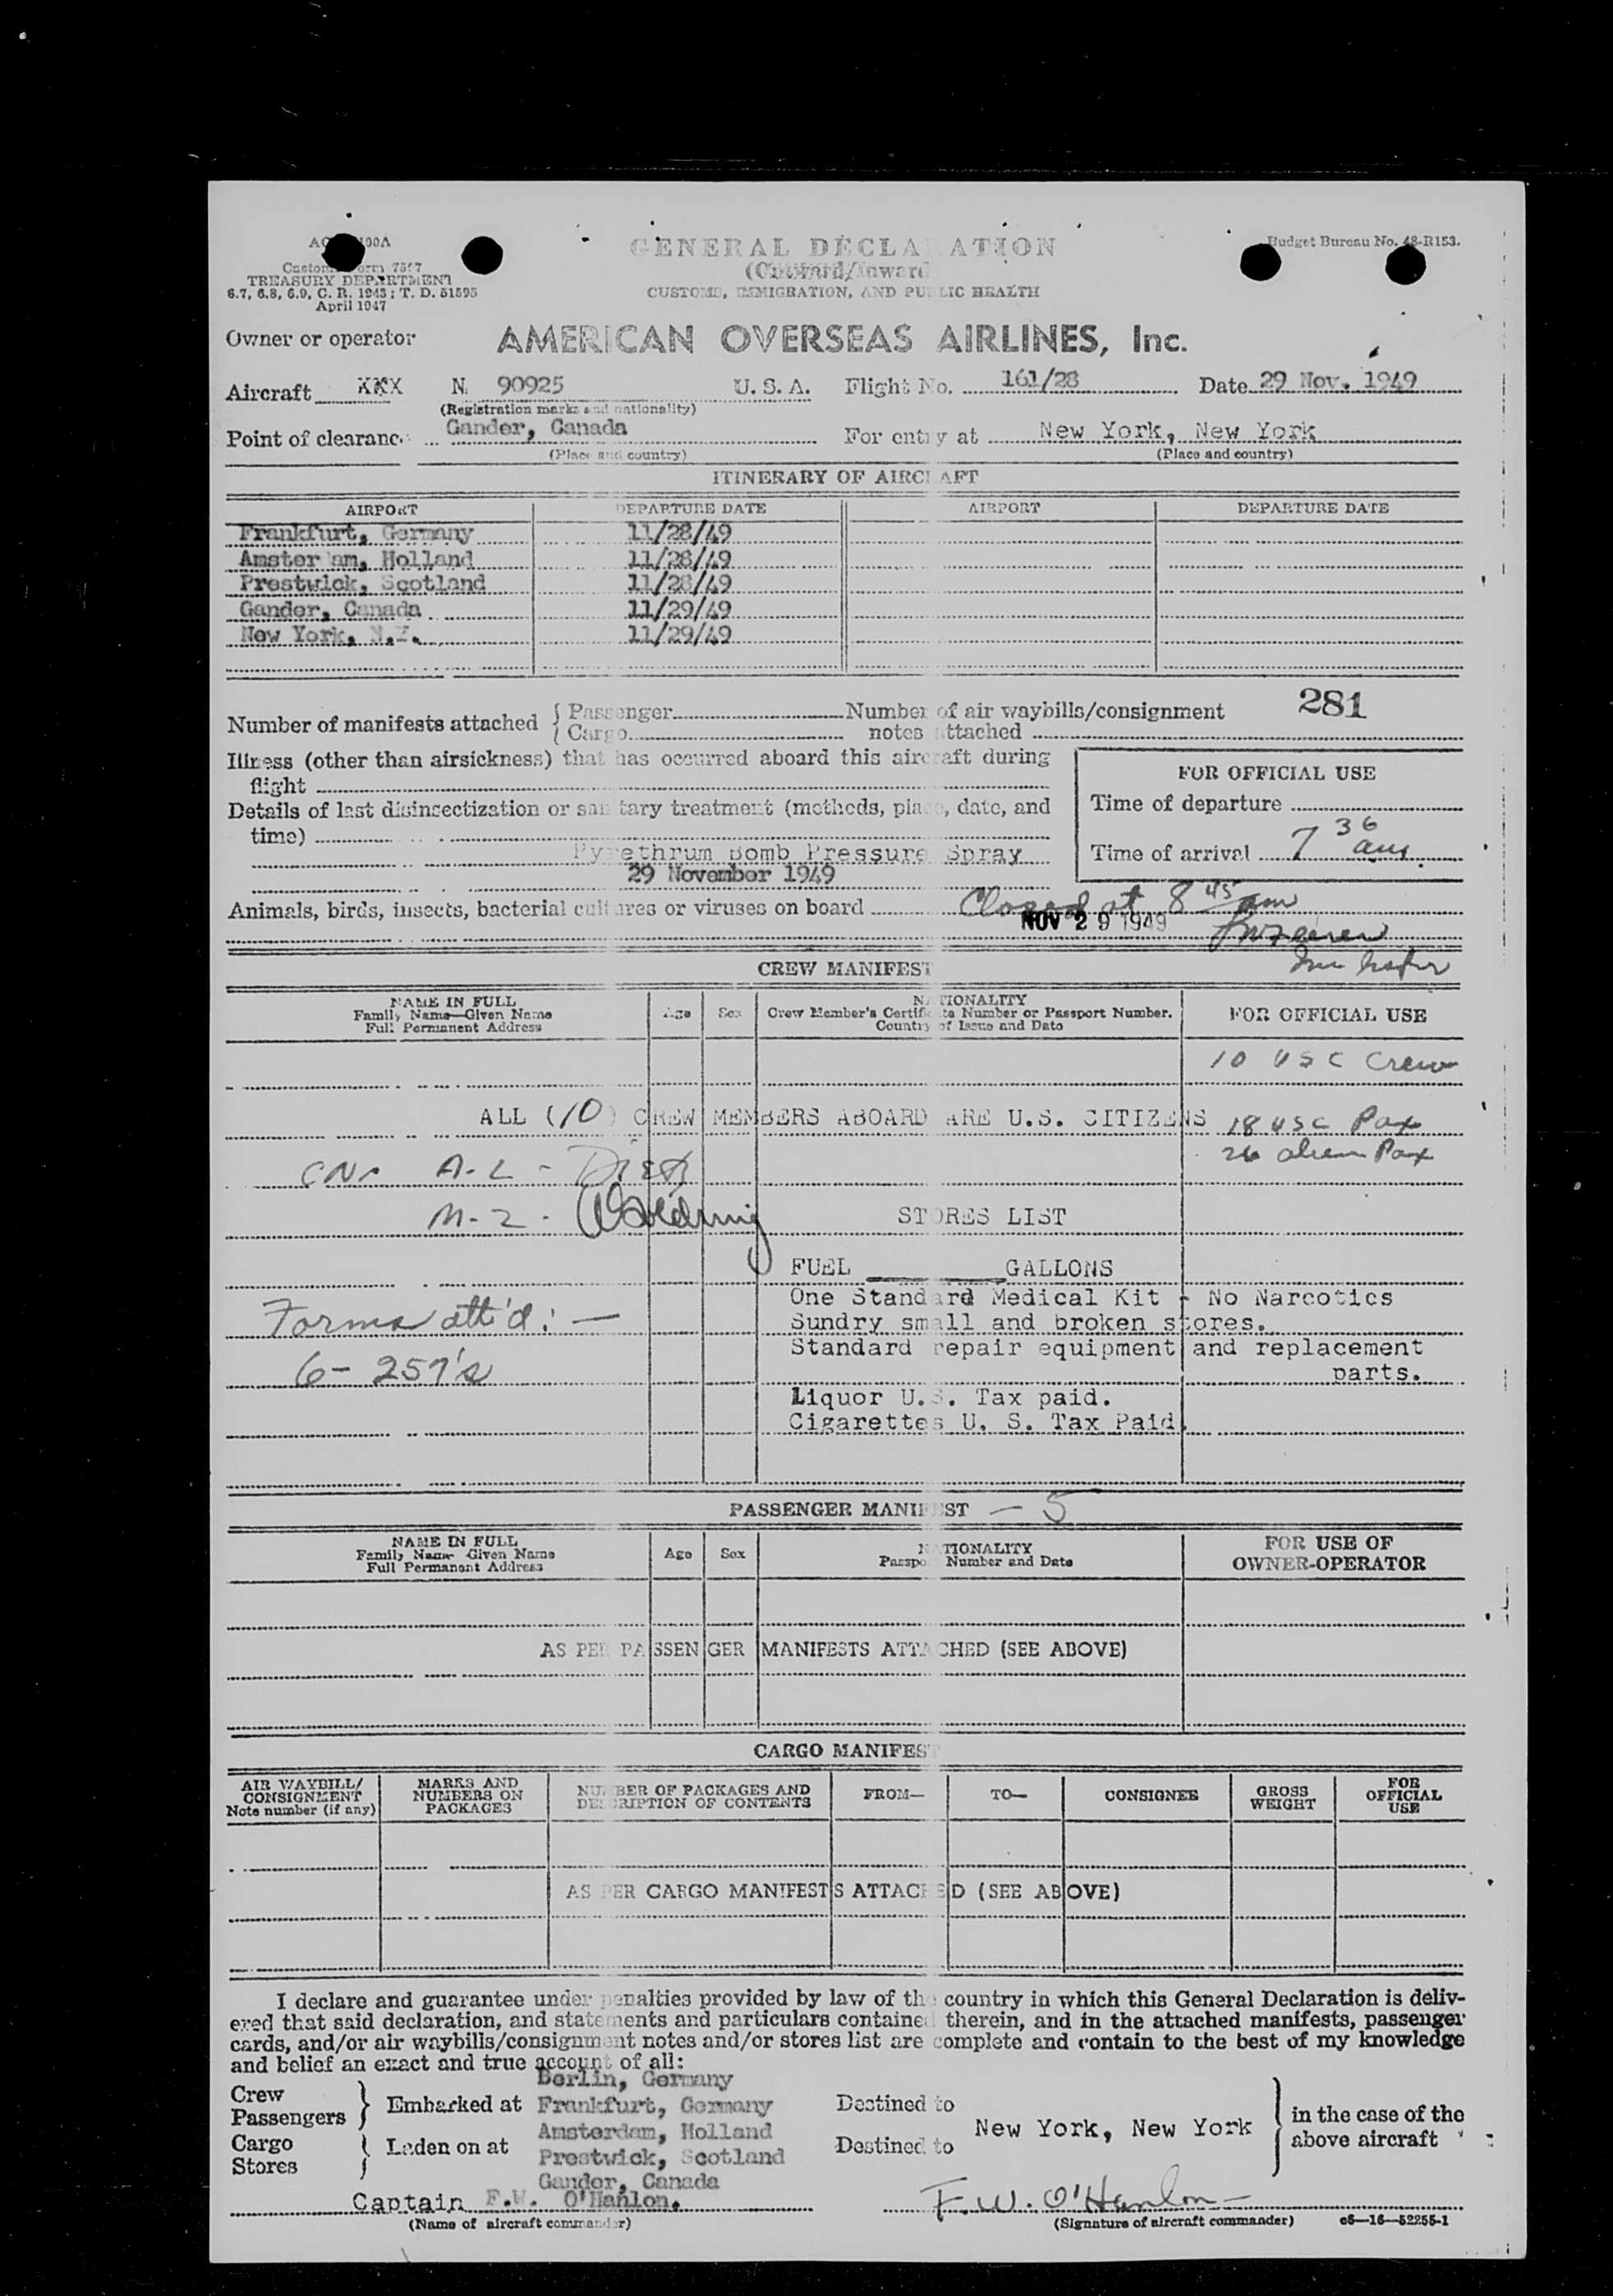 GENERAL DECLARATION
Budget Bureau No. 48-R153.
Customs Form 7507
TREASURY DEPARTMENT
6.7, 6.8, 6.9, C. R. 1943; T. D. 51595
April 1947
(Outward/Inward)
CUSTOMS, IMMIGRATION, AND PUBLIC HEALTH
Owner or operator AMERICAN OVERSEAS AIRLINES, Inc.
Aircraft XXX N 90925 U. S. A. Flight No. 161/28 Date 29 Nov. 1949
(Registration marks and nationality)
Point of clearance Gander, Canada For entry at New York, New York
(Place and country) (Place and country)
ITINERARY OF AIRCRAFT
AIRPORT DEPARTURE DATE AIRPORT DEPARTURE DATE
Frankfurt, Germany 11/28/49
Amsterdam, Holland 11/28/49
Prestwick, Scotland 11/28/49
Gander, Canada 11/29/49
New York, N.Y. 11/29/49
281
Number of manifests attached { Passenger Number of air waybills/consignment
Cargo notes attached
Illness (other than airsickness) that has occurred aboard this aircraft during
flight
FOR OFFICIAL USE
Details of last disinsectization or sanitary treatment (methods, place, date, and
time)
Time of departure
Pyrethrum Bomb Pressure Spray
Time of arrival 7 36 am.
29 November 1949
Animals, birds, insects, bacterial cultures or viruses on board Closed at 8 45 am
NOV 29 1949
CREW MANIFEST
NAME IN FULL
Family Name—Given Name
Full Permanent Address
Age Sex
NATIONALITY
Crew Member's Certificate Number or Passport Number.
Country of Issue and Date
FOR OFFICIAL USE
10 USC Crew
ALL (10) CREW MEMBERS ABOARD ARE U.S. CITIZENS 18 USC Pax
26 alien Pax
A-L -
M-2 -
STORES LIST
FUEL GALLONS
One Standard Medical Kit - No Narcotics
Forms att'd: —
Sundry small and broken stores.
Standard repair equipment and replacement
6- 257's
parts.
Liquor U.S. Tax paid.
Cigarettes U. S. Tax Paid.
PASSENGER MANIFEST — 5
NAME IN FULL
Family Name Given Name
Full Permanent Address
Age Sex
NATIONALITY
Passport Number and Date
FOR USE OF
OWNER-OPERATOR
AS PER PASSENGER MANIFESTS ATTACHED (SEE ABOVE)
CARGO MANIFEST
AIR WAYBILL/
CONSIGNMENT
Note number (if any)
MARKS AND
NUMBERS ON
PACKAGES
NUMBER OF PACKAGES AND
DESCRIPTION OF CONTENTS
FROM— TO— CONSIGNEE
GROSS
WEIGHT
FOR
OFFICIAL
USE
AS PER CARGO MANIFESTS ATTACHED (SEE ABOVE)
I declare and guarantee under penalties provided by law of the country in which this General Declaration is deliv-
ered that said declaration, and statements and particulars contained therein, and in the attached manifests, passenger
cards, and/or air waybills/consignment notes and/or stores list are complete and contain to the best of my knowledge
and belief an exact and true account of all:
Berlin, Germany
Crew
Passengers } Embarked at Frankfurt, Germany Destined to
Amsterdam, Holland New York, New York } in the case of the
above aircraft
Cargo
Stores } Laden on at Prestwick, Scotland Destined to
Gander, Canada
Captain F.W. O'Hanlon. F. W. O'Hanlon
(Name of aircraft commander) (Signature of aircraft commander) c6—16—52255-1